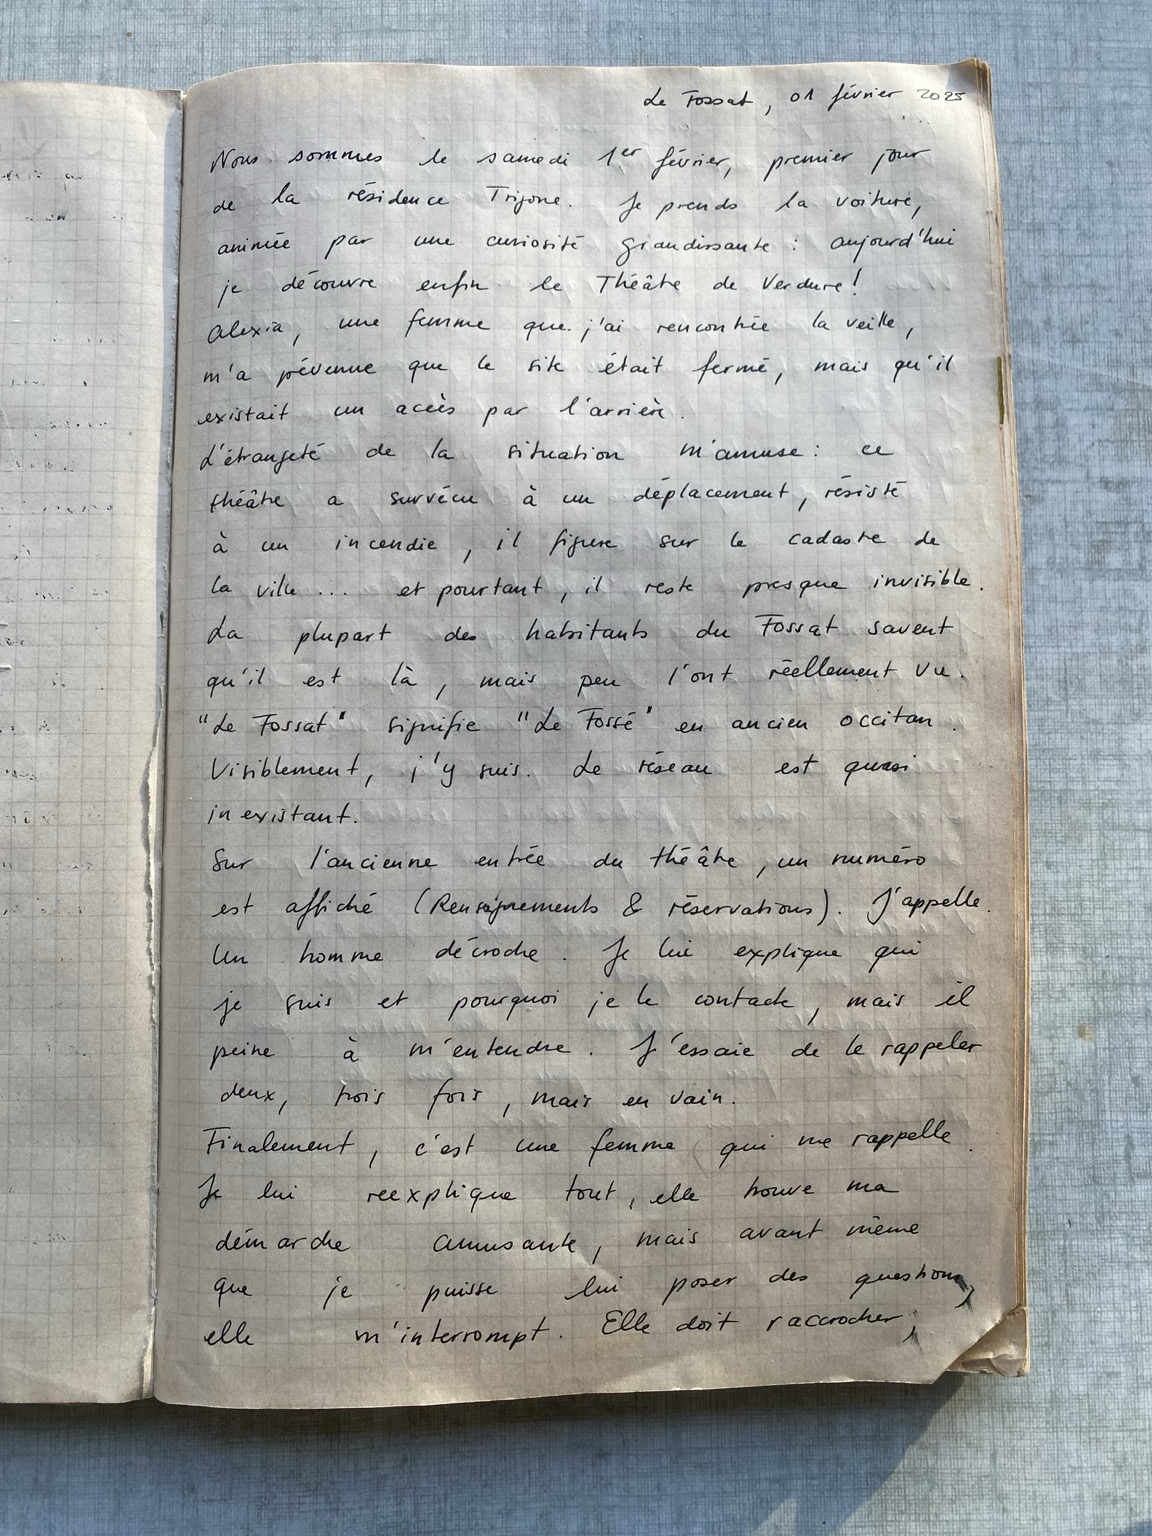 Le Fossat, 01 février 2025
Nous sommes le samedi 1er février, premier jour
de la résidence Trigone. Je prends la voiture,
animée par une curiosité grandissante : aujourd'hui
je découvre enfin le Théâtre de Verdure !
Alexia, une femme que j'ai rencontrée la veille,
m'a prévenue que le site était fermé, mais qu'il
existait un accès par l'arrière.
L'étrangeté de la situation m'amuse : ce
théâtre a survécu à un déplacement, résisté
à un incendie, il figure sur le cadastre de
la ville... et pourtant, il reste presque invisible.
La plupart des habitants du Fossat savent
qu'il est là, mais peu l'ont réellement vu.
"Le Fossat" signifie "Le Fossé" en ancien occitan.
Visiblement, j'y suis. Le réseau est quasi
inexistant.
Sur l'ancienne entrée du théâtre, un numéro
est affiché (Renseignements & réservations). J'appelle.
Un homme décroche. Je lui explique qui
je suis et pourquoi je le contacte, mais il
peine à m'entendre. J'essaie de le rappeler
deux, trois fois, mais en vain.
Finalement, c'est une femme qui me rappelle.
Je lui reexplique tout, elle trouve ma
démarche amusante, mais avant même
que je puisse lui poser des questions,
elle m'interrompt. Elle doit raccrocher,